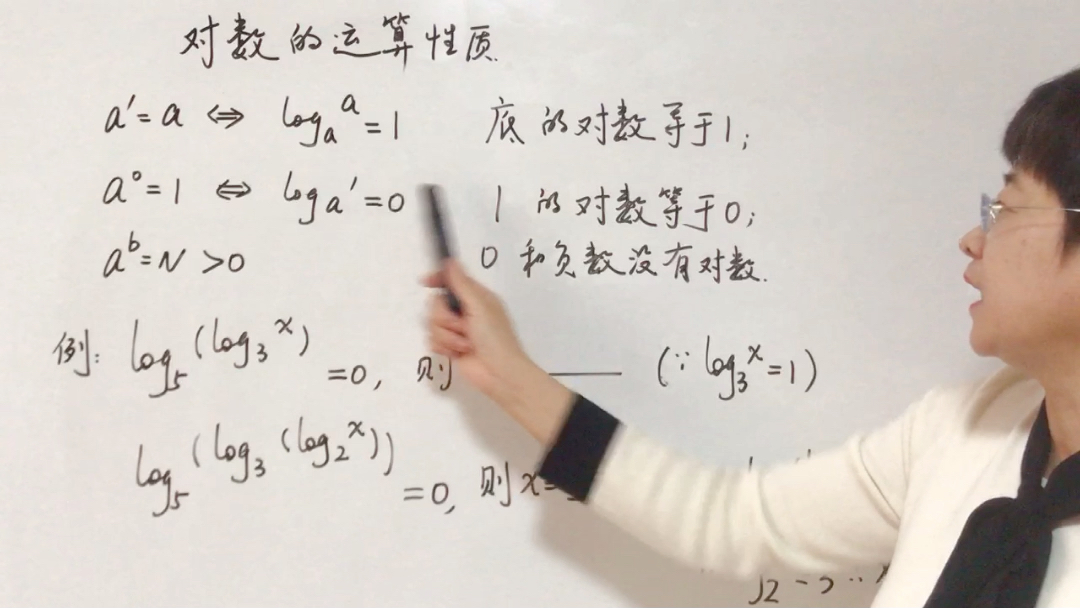 对数的运算性质
a¹=a ⇔ logₐᵃ=1 底的对数等于1;
a⁰=1 ⇔ logₐ¹=0 1的对数等于0;
aᵇ=N>0 0和负数没有对数.
例: log₅(log₃ˣ)=0, 则 ____ (∵log₃ˣ=1)
log₅(log₃(log₂ˣ))=0, 则x=